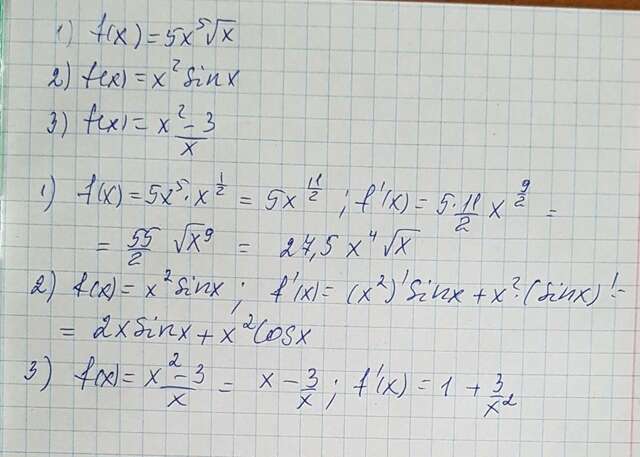 1) f(x) = 5x⁵√x
2) f(x) = x² sin x
3) f(x) = (x² - 3)/x
1) f(x) = 5x⁵ · x^(1/2) = 5x^(11/2) ; f'(x) = 5·11/2 x^(9/2) =
= 55/2 √x⁹ = 27,5 x⁴ √x
2) f(x) = x² sin x ; f'(x) = (x²)' sin x + x² · (sin x)' =
= 2x sin x + x² cos x
3) f(x) = (x² - 3)/x = x - 3/x ; f'(x) = 1 + 3/x²